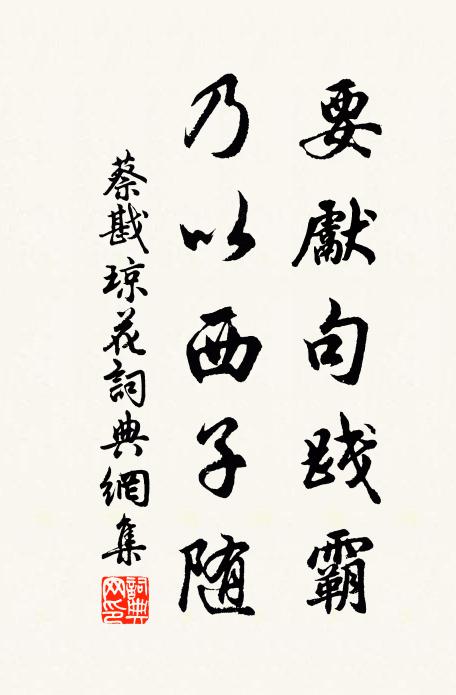 要獻句踐霸
乃以西子随
蔡戡琼花詞典網集
詞典网印